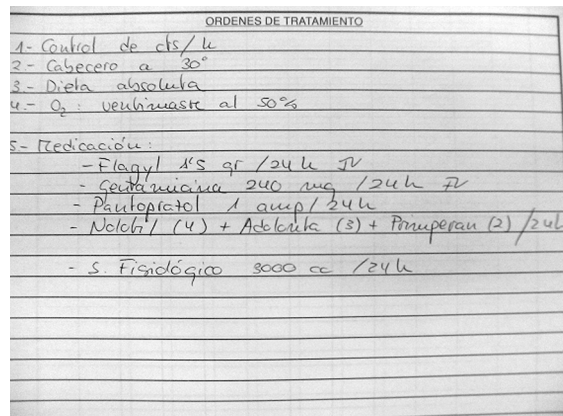 ORDENES DE TRATAMIENTO
1- Control de cts/h
2.- Cabecero a 30°
3.- Dieta absoluta
4.- O2: ventimask al 50%
5- Medicación:
- Flagyl 1'5 gr /24h IV
- Gentamicina 240 mg /24h IV
- Pantoprazol 1 amp/24h
- Nolotil (4) + Adolonta (3) + Primperan (2) /24h
- S. Fisiológico 3000 cc /24h